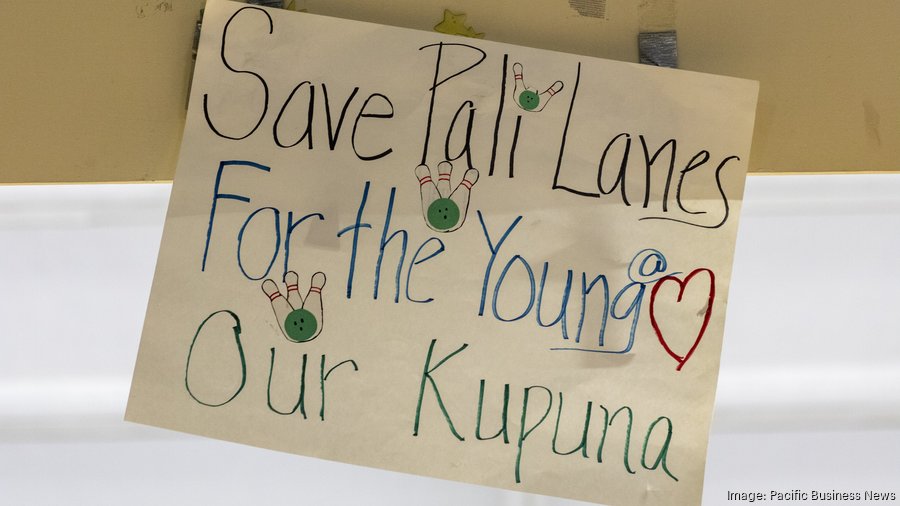 Save Pali Lanes
For the Young @ ♥
Our Kupuna
Image: Pacific Business News